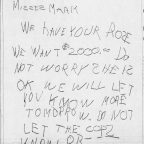 MISSES MARK
WE HAVE YOUR ROSE
WE WANT $2000.00 DO
NOT WORRY SHE IS
OK WE WILL LET
YOU KNOW MORE
TOMORROW. DO NOT
LET THE COPZ
KNOW OR